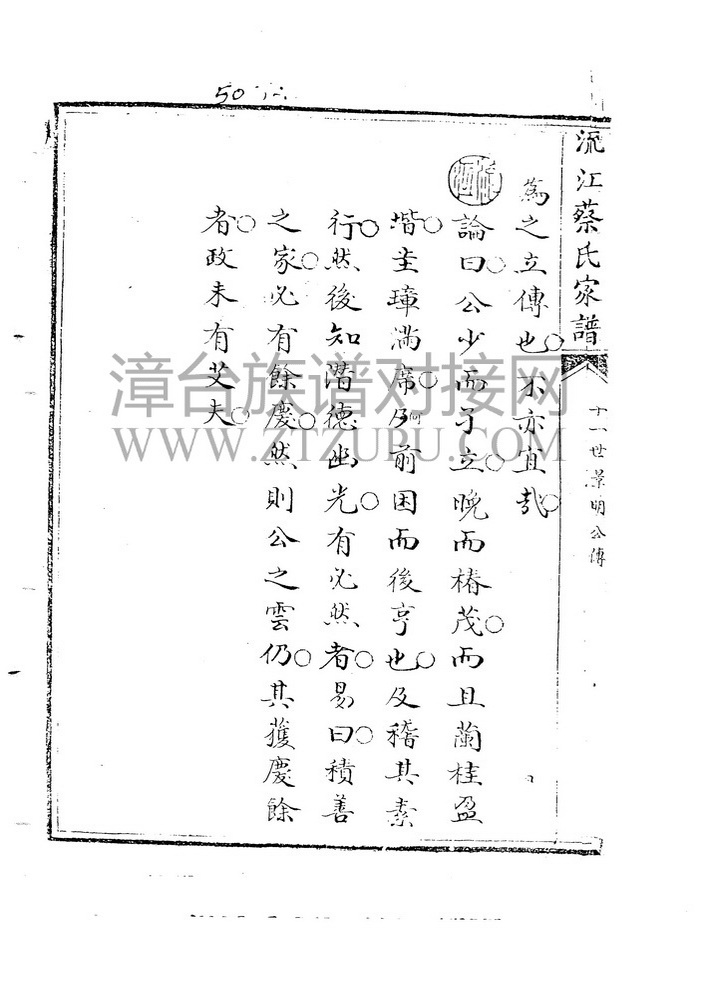 50
流江蔡氏家譜
十一世景明公傳
為之立傳也不亦宜哉
論曰公少而孑立晚而椿茂而且蘭桂盈
堦圭璋滿席何前困而後亨也及稽其素
行然後知潛德幽光有必然者易曰積善
之家必有餘慶然則公之雲仍其獲慶餘
者政未有艾夫
漳台族谱对接网
WWW.ZTZUPU.COM